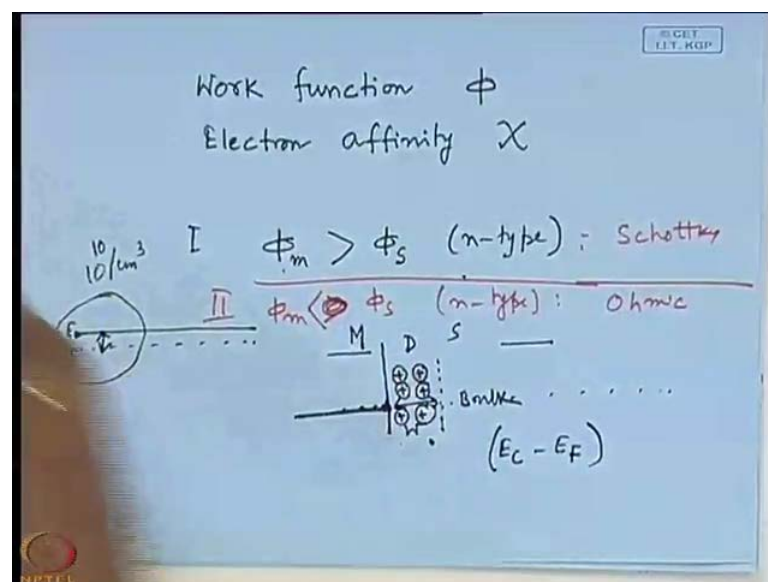 © CET
I.I.T. KGP
Work function ϕ
Electron affinity χ
10
10/cm³
I ϕm > ϕs (n-type) : Schottky
II ϕm < ϕs (n-type) : Ohmic
M D S
+ +
+ +
+ +
(EC - EF)
NPTEL